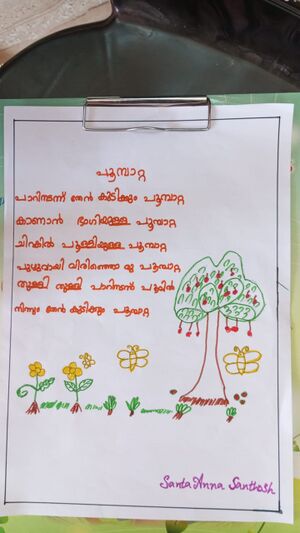 പൂമ്പാറ്റ
പാറിനടന്ന് തേൻ കുടിക്കും പൂമ്പാറ്റ
കാണാൻ ഭംഗിയുള്ള പൂമ്പാറ്റ
ചിറകിൽ പുള്ളിയുള്ള പൂമ്പാറ്റ
പുഴുവായി വിരിഞ്ഞൊരു പൂമ്പാറ്റ
തുള്ളി തുള്ളി പാറിനടന്ന് പൂവിൽ
നിന്നും തേൻ കുടിക്കും പൂമ്പാറ്റ
Santa Anna Santhosh